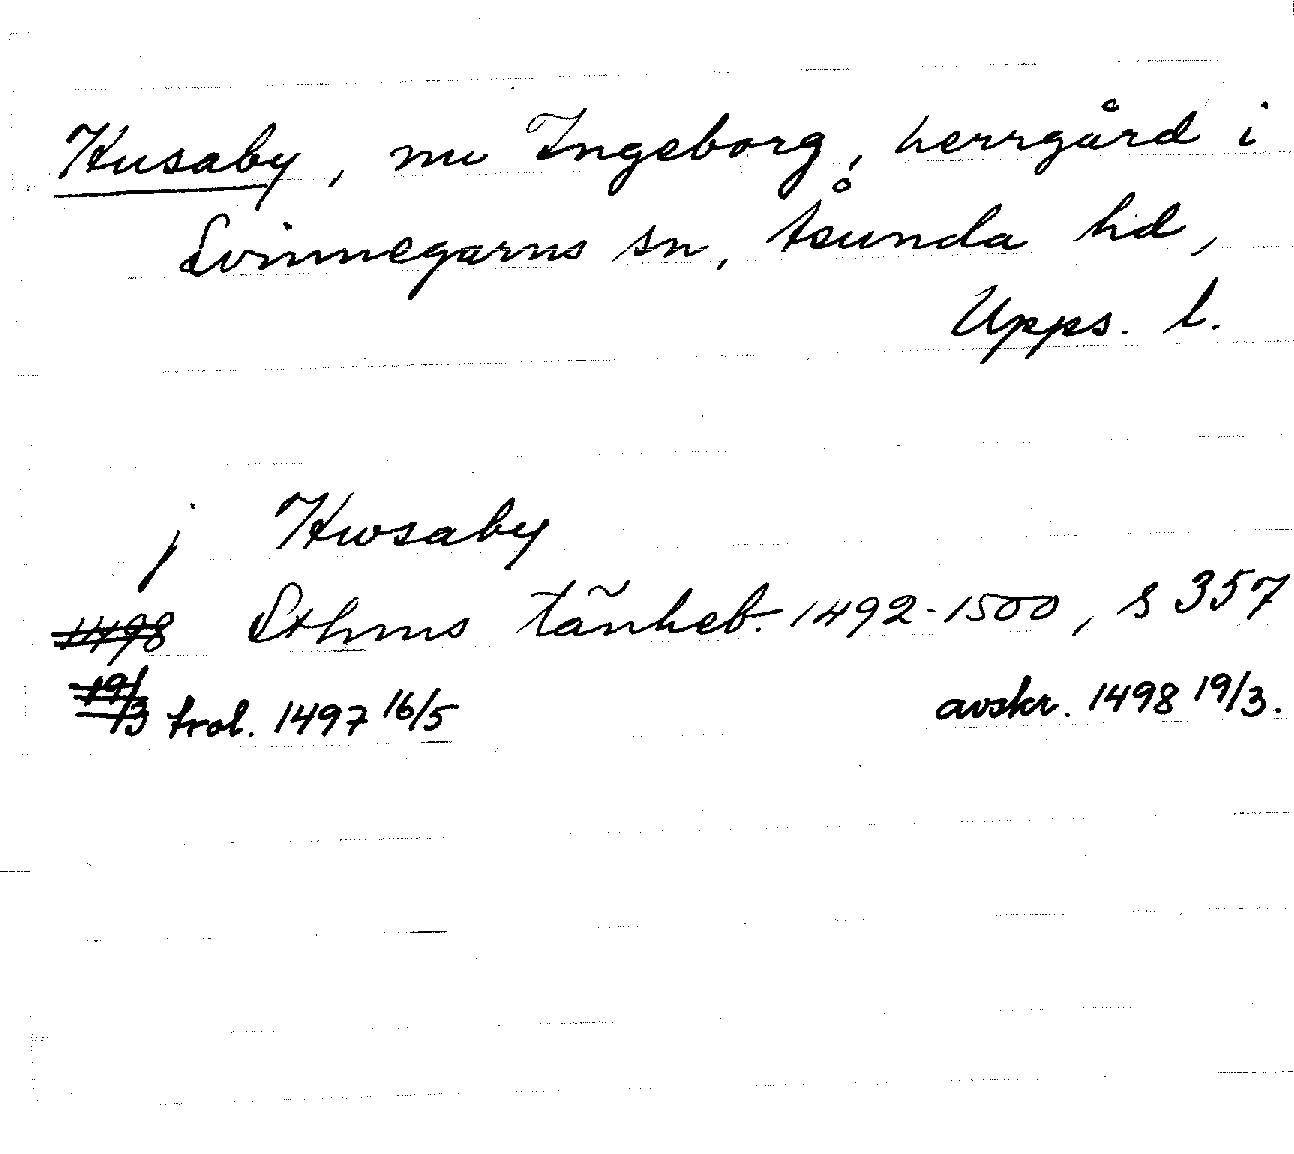 Husaby, nu Ingeborg, herrgård i
Svinnegarns sn, Åsunda hd,
Upps. l.
j Hwsaby
1498 Sthms tänkeb. 1492-1500, s 357
19/3 trol. 1497 16/5 avskr. 1498 19/3.